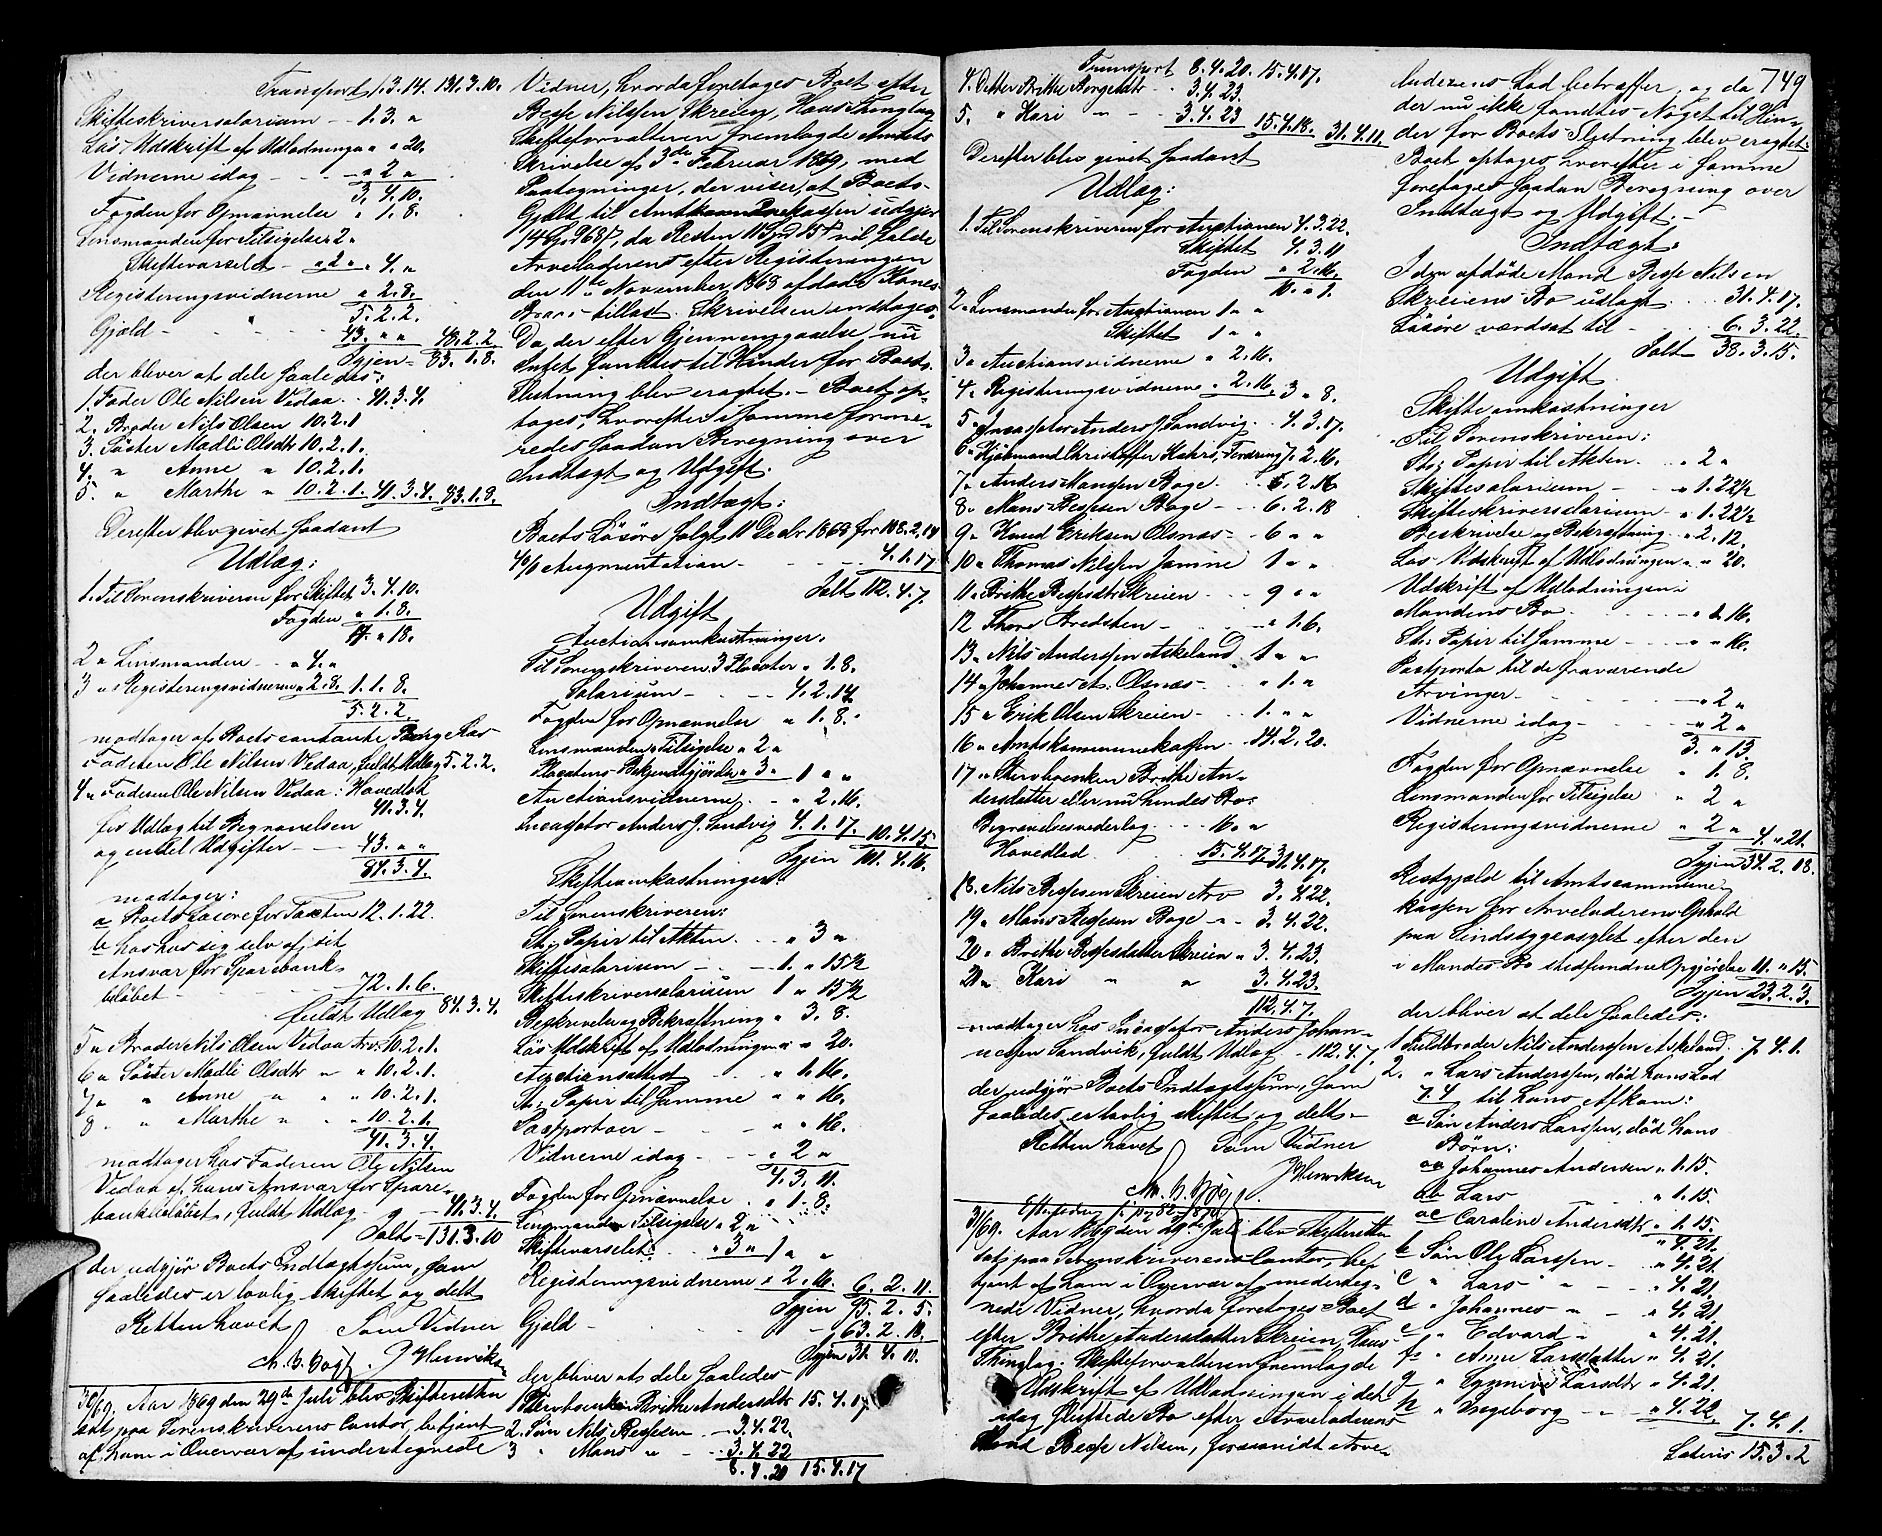 Transport 1.3.14. 131.3.10.
Skifteskriversalarium - - 1. 3. "
Løs. Udskrift af Udlodningen " " 20.
Vidnerne idag - - - " 2 "
3. 4. 10.
Fogden for Opnævnelse " 1. 8.
Lensmanden for Tilsigelse 2 "
Skiftevarselet - " 2 " " 4. "
Registeringsvidnerne " 2. 8.
5. 2. 2.
Gjæld - - " - 43. " " 48. 2. 2
Igjen - 83. 1. 8.
der bliver at dele saaledes:
1. Fader Ole Nilsen Vedaa - - 41. 3. 4.
2. Broder Nils Olsen 10. 2. 1
3. Søster Madli Olsdtr 10. 2. 1.
4. " Anne " 10. 2. 1.
5. " Marthe " 10. 2. 1. 41. 3. 4. 83. 1. 8.
Derefter blev givet saadant
Udlæg:
1. Til Sorenskriveren for Skiftet 3. 4. 10.
Fogden " 1. 8.
4. " 18.
2 " Lensmanden - - " 4. "
3 " Registeringsvidnerne " 2. 8. 1. 1. 8.
5. 2. 2
modtager af Boets contante Penge hos
Faderen Ole Nilsen Vedaa, fuldt Udlæg 5. 2. 2.
4 " Faderen Ole Nilsen Vedaa: Hovedlod
41. 3. 4.
for Udlæg til Begravelsen
og endel Udgifter - - 43. " "
84. 3. 4.
modtager:
a Boets Løsøre for Taxten 12. 1. 22.
b hos hos sig selv af sit
Ansvar for Sparebank-
beløbet - - - 72. 1. 6.
fuldt Udlæg 84. 3. 4.
5 " Broder Nils Olsen Vedaa Arv. 10. 2. 1.
6 " Søster Madli Olsdtr " " 10. 2. 1.
7 " " Anne " " " 10. 2. 1.
8 " " Marthe " " " 10. 2. 1.
41. 3. 4.
modtager hos Faderen Ole Nilsen
Vedaa af hans Ansvar for Spare-
bankbeløbet, fuldt Udlæg - 41. 3. 4.
Ialt - 131. 3. 10
der udgjør Boets Indtægtssum, som
saaledes er lovlig skiftet og delt
Retten hævet Som Vidner
M. B. Bøgh. J Henriksen
30/69. Aar 1869 den 29de Juli blev Skifteretten
sat paa Sorenskriverens Contor, betjent
af ham i Overvær af undertegnede
Vidner, hvorda foretoges Boet efter
Besse Nilssen Skreien, Haus Thinglag
Skifteforvalteren fremlagde Amtets
Skrivelse af 3de Februar 1869, med
Paategninger, der viser, at Boets
Gjæld til Amtkommunekassen udgjør
14 Spd 68 s, da Resten 11 Spd 15 s vil falde
Arveladerens efter Registeringen
den 11te November 1868 afdøde Kones
Bo - tillast. Skrivelsen indtages.
Da der efter Gjennemgaaelse nu
Intet fandtes til Hinder for Boets
Slutning blev eragtet. - Boet op-
tages, hvorefter i Samme forme-
redes saadan Beregning over
Indtægt og Udgift.
Indtægt:
Boets Løsøre solgt 11 Decbr 1868 for 108. 2. 14
4 o/o Augmentation - - - 4. 1. 17
Ialt 112. 4. 7.
Udgift
Auctionsomkostninger.
Til Sorenskriveren 3 Placater " 1. 8.
Salarium - - - 4. 2. 14
Fogden for Opnævnelse " 1. 8.
Lensmanden " Tilsigelse " 2 "
Placatens Bekjendtgjørelse " 3 " 1 " "
Auctionsvidnerne - - " 2. 16.
Incassator Anders J. Sandvig 4. 1. 17. 10. 4. 15
Igjen 101. 4. 16.
Skifteomkostninger.
Til Sorenskriveren:
St. Papir til Akten - - " 3 "
Skiftesalarium - - 1. " 15 1/2
Skifteskriversalarium 1 " 15 1/2
Beskrivelse og Bekræftning " 3. 8.
Løs Udskrift af Udlodningen " " 20.
Auctionsattest - - " 1. 16.
St. Papir til Samme " " 16.
Postportoer - - - " " 16.
Vidnerne idag - - " 2 "
4. 3. 11.
Fogden for Opnævnelse " 1. 8.
Lensmanden Tilsigelse " 2 "
Skiftevarselet - " 3 " 1 " "
Registeringsvidnerne " 2. 16. 6. 2. 11.
Igjen 95. 2. 5.
Gjæld - - - 63. 2. 18.
Igjen 31. 4. 11.
der bliver at dele saaledes
1 Stervboenken Brithe Andersdtr 15. 4. 17
2. Søn Nils Bessesen - - 3. 4. 22.
3 " Mons " - - 3. 4. 22
8. 4. 20 15. 4. 17
Transport 8. 4. 20. 15. 4. 17.
4. Datter Brithe Bessesdtr - 3. 4. 23.
5. " Kari " - 3. 4. 23 15. 4. 18. 31. 4. 11.
Derefter blev givet saadant
Udlæg:
1. Til Sorenskriveren for Auctionen 4. 3. 22.
Skiftet 4. 3. 11
Fogden " 2. 16.
10. " 1.
2. Lensmanden for Auctionen 1 " "
Skiftet 1 " "
3 " Auctionsvidnerne " 2. 16.
4 " Registeringsvidnerne " 2. 16. 3 " 8.
5 " Incassator Anders J Sandvig - 4. 3. 17.
6 " Kjøbmand Christoffer Kahrs, Fordring 7. 2. 16.
7 " Anders Monsen Boge - - 6. 2. 16
8 " Mons Bessesen Boge - - 6. 2. 18
9 " Knud Eriksen Olsnæs - - 6 " "
10 " Thomas Nilssen Samme 1 " "
11 " Brithe Bessesdtr Skreien - - 9 " "
12 " Thore Bredsten - - - " 1. 6.
13 " Nils Anderssen Askeland 1 " "
14 " Johannes A. Olsnæs - - " 1. "
15 " Erik Olsen Skreien - - 1. " "
16 " Amtskommunekassen - - 14. 2. 20.
17 " Stervboenken Brithe An-
dersdatter eller nu hendes Bo:
Begravelsesvederlag - - 16. " "
Hovedlod. 15. 4. 17 31. 4. 17.
18. Nils Bessesen Skreien Arv 3. 4. 22.
19 " Mons Bessesen Boge " - 3. 4. 22.
20 " Brithe Bessesdatter Skreien " 3. 4. 23.
21 " Kari " " 3. 4. 23.
112. 4. 7.
modtager hos Incassator Anders Johan-
nessen Sandvik, fuldt Udlæg - 112. 4. 7.
der udgjør Boets Indtægtssum, som
saaledes er lovlig skiftet og delt -
Retten hævet Som Vidner
M. B. Bøgh. J Henriksen
31/69. Aar 1869 den 29de Juli blev Skifteretten
sat paa Sorenskriverens Contor, be-
tjent af ham i Overvær af underteg-
nede Vidner, hvorda foretoges Boet
efter Brithe Andersdatter Skreien, Haus
Thinglag. Skifteforvalteren fremlagde
Udskrift af Udlodningen i det
idag sluttede Bo efter Arveladerens
Mand Besse Nilsen, forsaavidt Arve-
749
laderens Lod betræffer, og da
der nu ikke fandtes Noget til Hin-
der for Boets Slutning blev eragtet:
Boet optages hvorefter i Samme
foretoges saadan Beregning over
Indtægt og Udgift. -
Indtægt:
I den afdøde Mand Besse Nilsen
Skreiens Bo udlagt - - 31. 4. 17.
Løsøre værdsat til - - 6. 3. 22.
Ialt 38. 3. 15.
Udgift.
Skifteomkostninger
Til Sorenskriveren:
St. Papir til Akten. - - " 2 "
Skiftesalarium - - " 1. 22 1/2
Skifteskriversalarium - " 1. 22 1/2
Beskrivelse og Bekræftning - " 2. 12.
Løs Udskrift af Udlodningen " " 20.
Udskrift af Udlodningen i
Mandens Bo. - - - " 1. 16.
St. Papir til Samme - - " " 16.
Postporto til de fraværende
Arvinger - - - " 2 "
Vidnerne idag - - - " 2 "
3. " 13.
Fogden for Opnævnelse " 1. 8.
Lensmanden for Tilsigelse " 2 "
Registeringsvidnerne " 2 " 4. " 21.
Igjen 34. 2. 18.
Restgjæld til Amtscommune-
kassen for Arveladerens Ophold
paa Sindssygeasylet efter den
i Mandens Bo indfundne Opgjørelse 11. " 15.
Igjen 23. 2. 3.
der bliver at dele saaledes:
1 Fuldbroder Nils Anderssen Askeland - 7. 4. 1.
2. " Lars Anderssen, død hans Lod
7. 4 til hans Afkom:
a Søn Anders Larssen, død hans
Børn:
aa Johannes Andersen " 1. 15.
ab Lars " 1. 15
ac Caroline Andersdtr " 1. 15.
" 4. 21.
b Søn Ole Larssen - - " 4. 21.
c " Lars " - - " 4. 21.
d " Johannes - " " 4. 21.
e " Edvard - " 4. 21.
f " Anne Larsdatter " 4. 21.
g " Synnive Larsdtr " 4. 21.
h " Ingeborg " - " 4. 22. 7. 4. 1.
Lateris 15. 3. 2